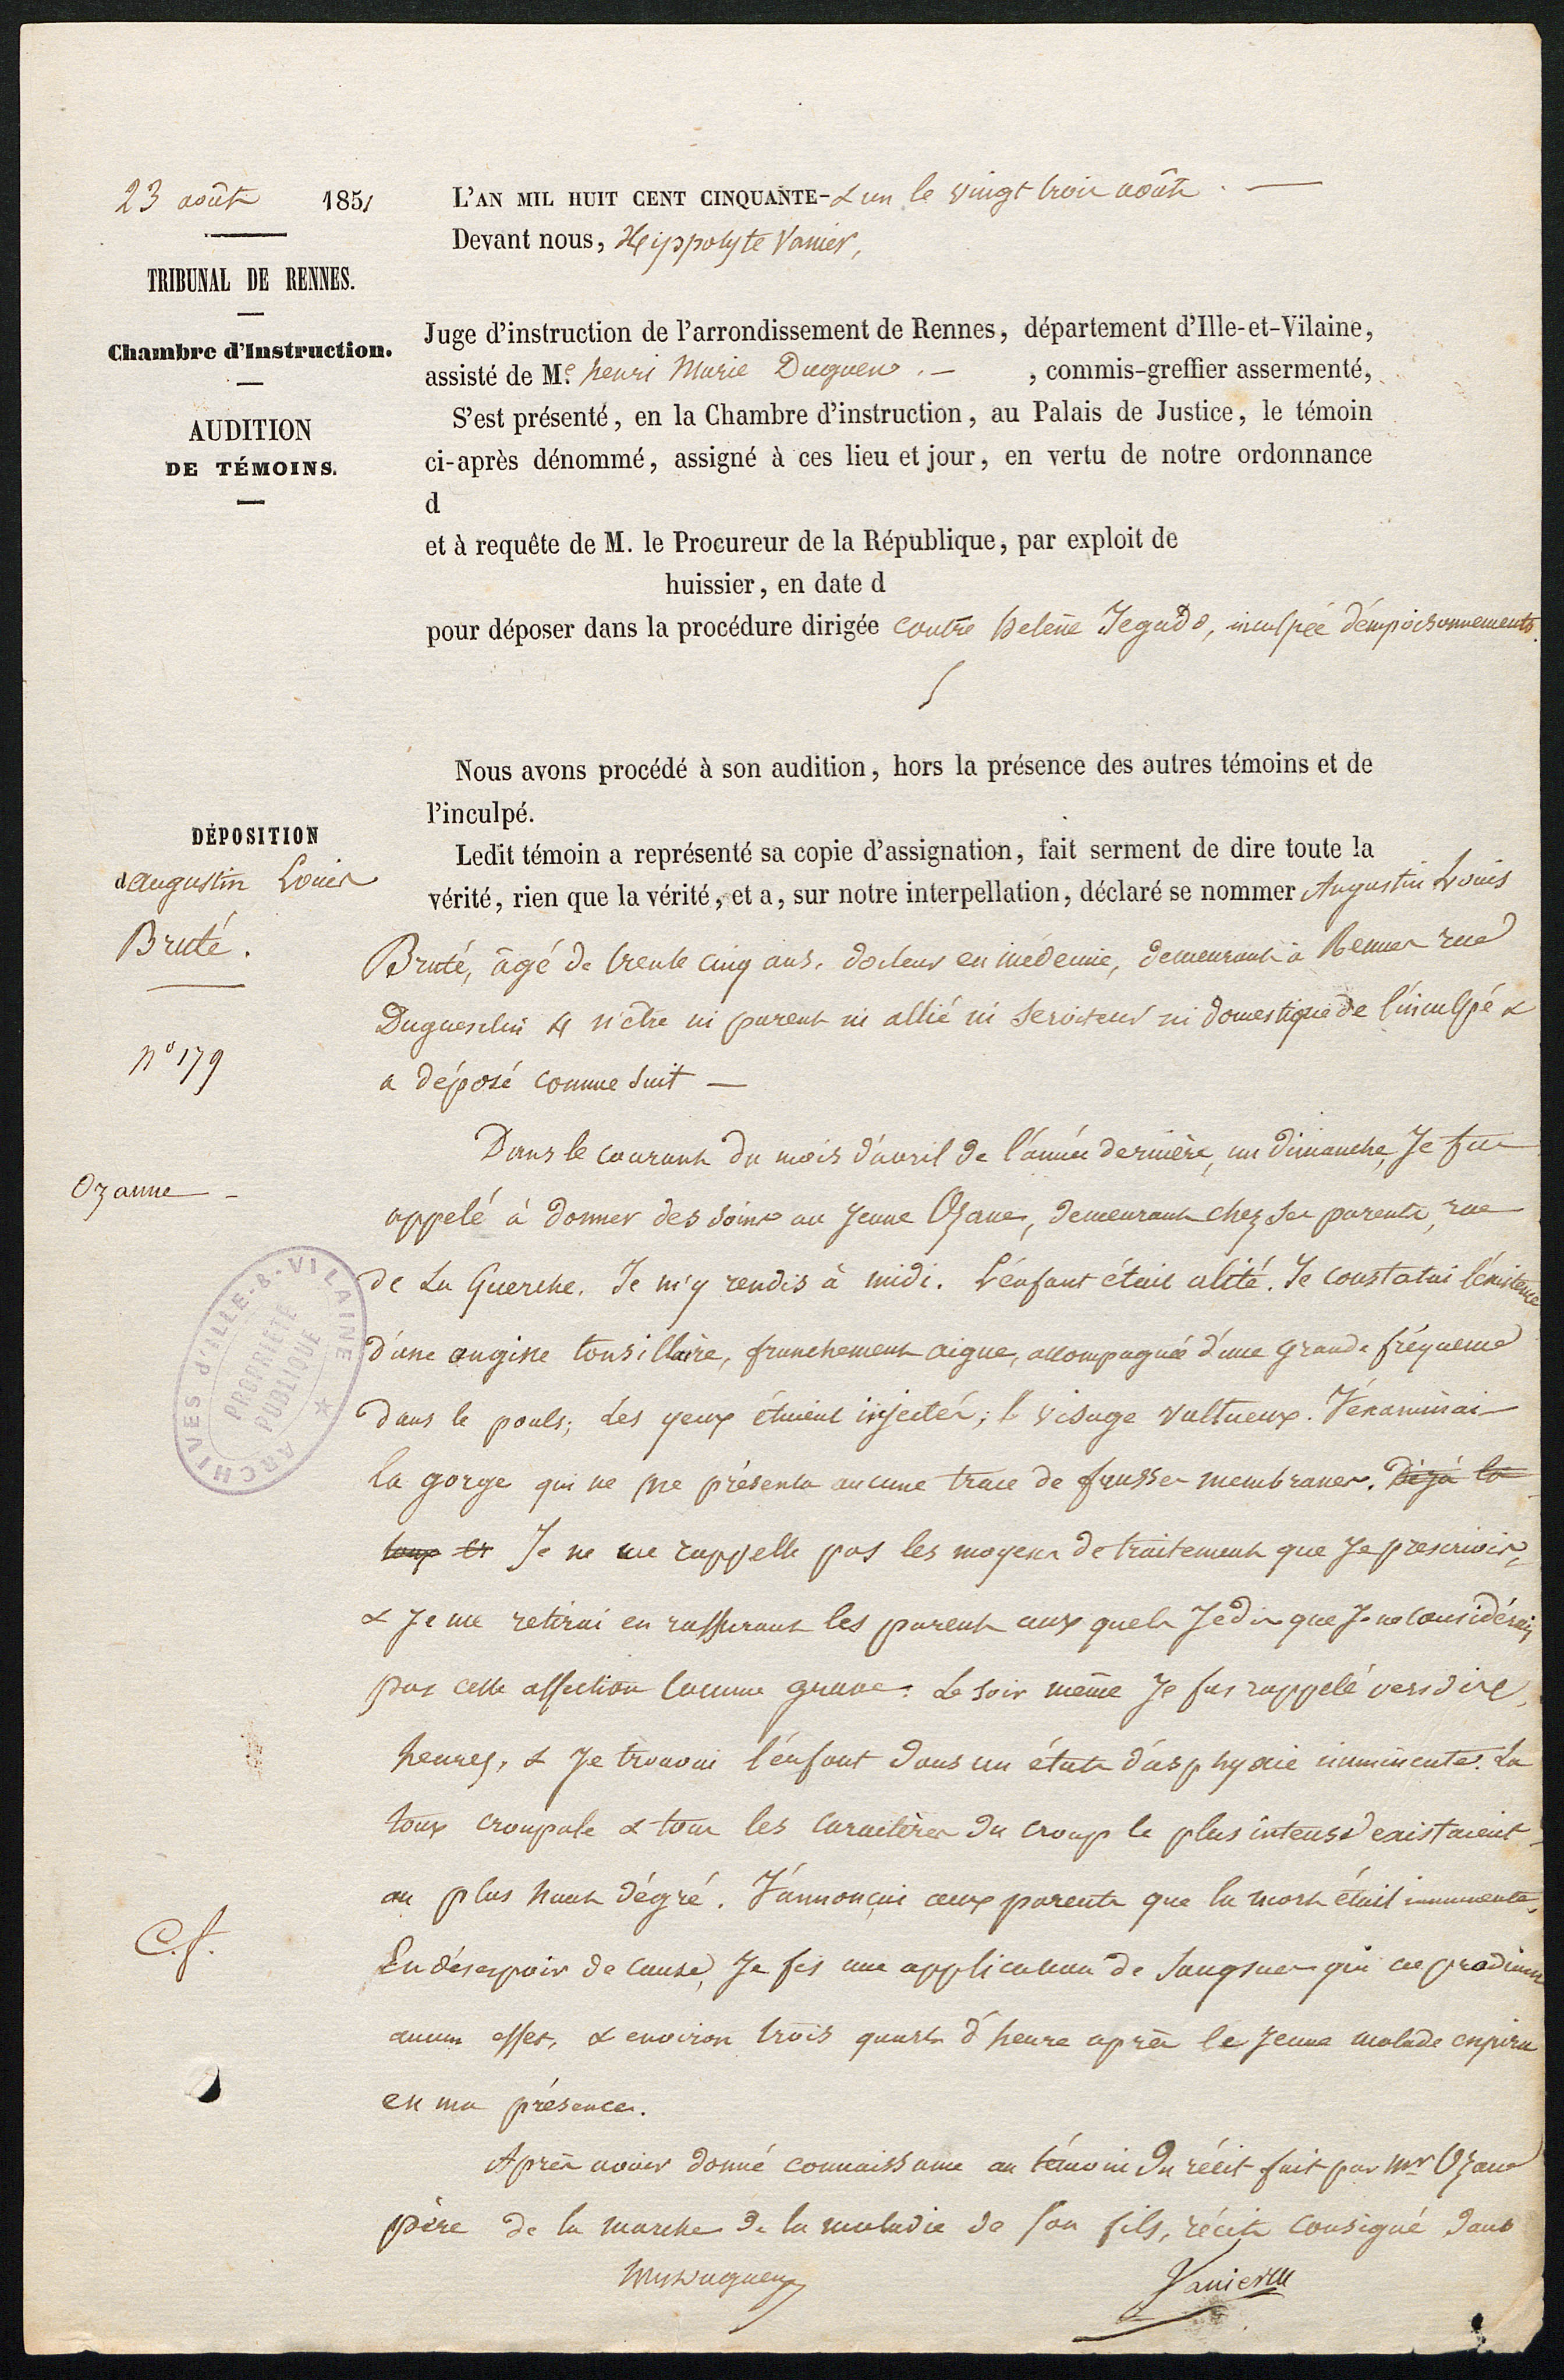 23 août 1851
TRIBUNAL DE RENNES.
Chambre d'Instruction.
AUDITION
DE TÉMOINS.
L'AN MIL HUIT CENT CINQUANTE-& un le vingt trois août. —
Devant nous, Hippolyte Vanier,
Juge d'instruction de l'arrondissement de Rennes, département d'Ille-et-Vilaine,
assisté de Me. henri Marie Duguen. — , commis-greffier assermenté,
S'est présenté, en la Chambre d'instruction, au Palais de Justice, le témoin
ci-après dénommé, assigné à ces lieu et jour, en vertu de notre ordonnance
d
et à requête de M. le Procureur de la République, par exploit de
huissier, en date d
pour déposer dans la procédure dirigée contre helène Jegado, inculpée d'empoisonnements.
Nous avons procédé à son audition, hors la présence des autres témoins et de
l'inculpé.
DÉPOSITION
d'augustin Louis
Bruté.
n° 179
Ledit témoin a représenté sa copie d'assignation, fait serment de dire toute la
vérité, rien que la vérité, et a, sur notre interpellation, déclaré se nommer Augustin Louis
Bruté, âgé de trente cinq ans, docteur en médecine, demeurant à Rennes rue
Duguesclin & n'être ni parent ni allié ni serviteur ni domestique de l'inculpé &
a déposé comme suit —
Ozanne —
Dans le courant du mois d'avril de l'année dernière, un dimanche, Je fus
appelé à donner des soins au jeune Ozane, demeurant chez ses parents, rue
de La Guerche. Je m'y rendis à midi. L'enfant était alité. Je constatai l'existence
d'une angine tonsillaire, franchement aigue, accompagnée d'une grande fréquence
dans le pouls; les yeux étaient injectés; le visage vultueux. J'éxaminai
la gorge qui ne me présenta aucune trace de fausses membranes. Déjà la
toux et Je ne me rappelle pas les moyens de traitement que Je prescrivis,
& Je me retirai en rassurant les parents aux quels Je dis que Je ne considérais
pas cette affection comme grave. Le soir même Je fus rappelé vers dix
heures, & Je trouvai l'enfant dans un état d'asphyxie imminente. La
toux croupale & tous les caractères du croup le plus intense existaient
au plus haut dégré. J'annonçai aux parents que la mort était imminente.
C.f.
En désespoir de cause, Je fis une application de Sangsues qui ne produisit
aucun effet, & environ trois quarts d'heure après le jeune malade expira
en ma présence.
Après avoir donné connaissance au témoin du récit fait par Mr Ozane
père de la marche de la maladie de son fils, récit consigné dans
Duguen
Vanier
ARCHIVES d'ILLE-&-VILAINE
PROPRIÉTÉ
PUBLIQUE